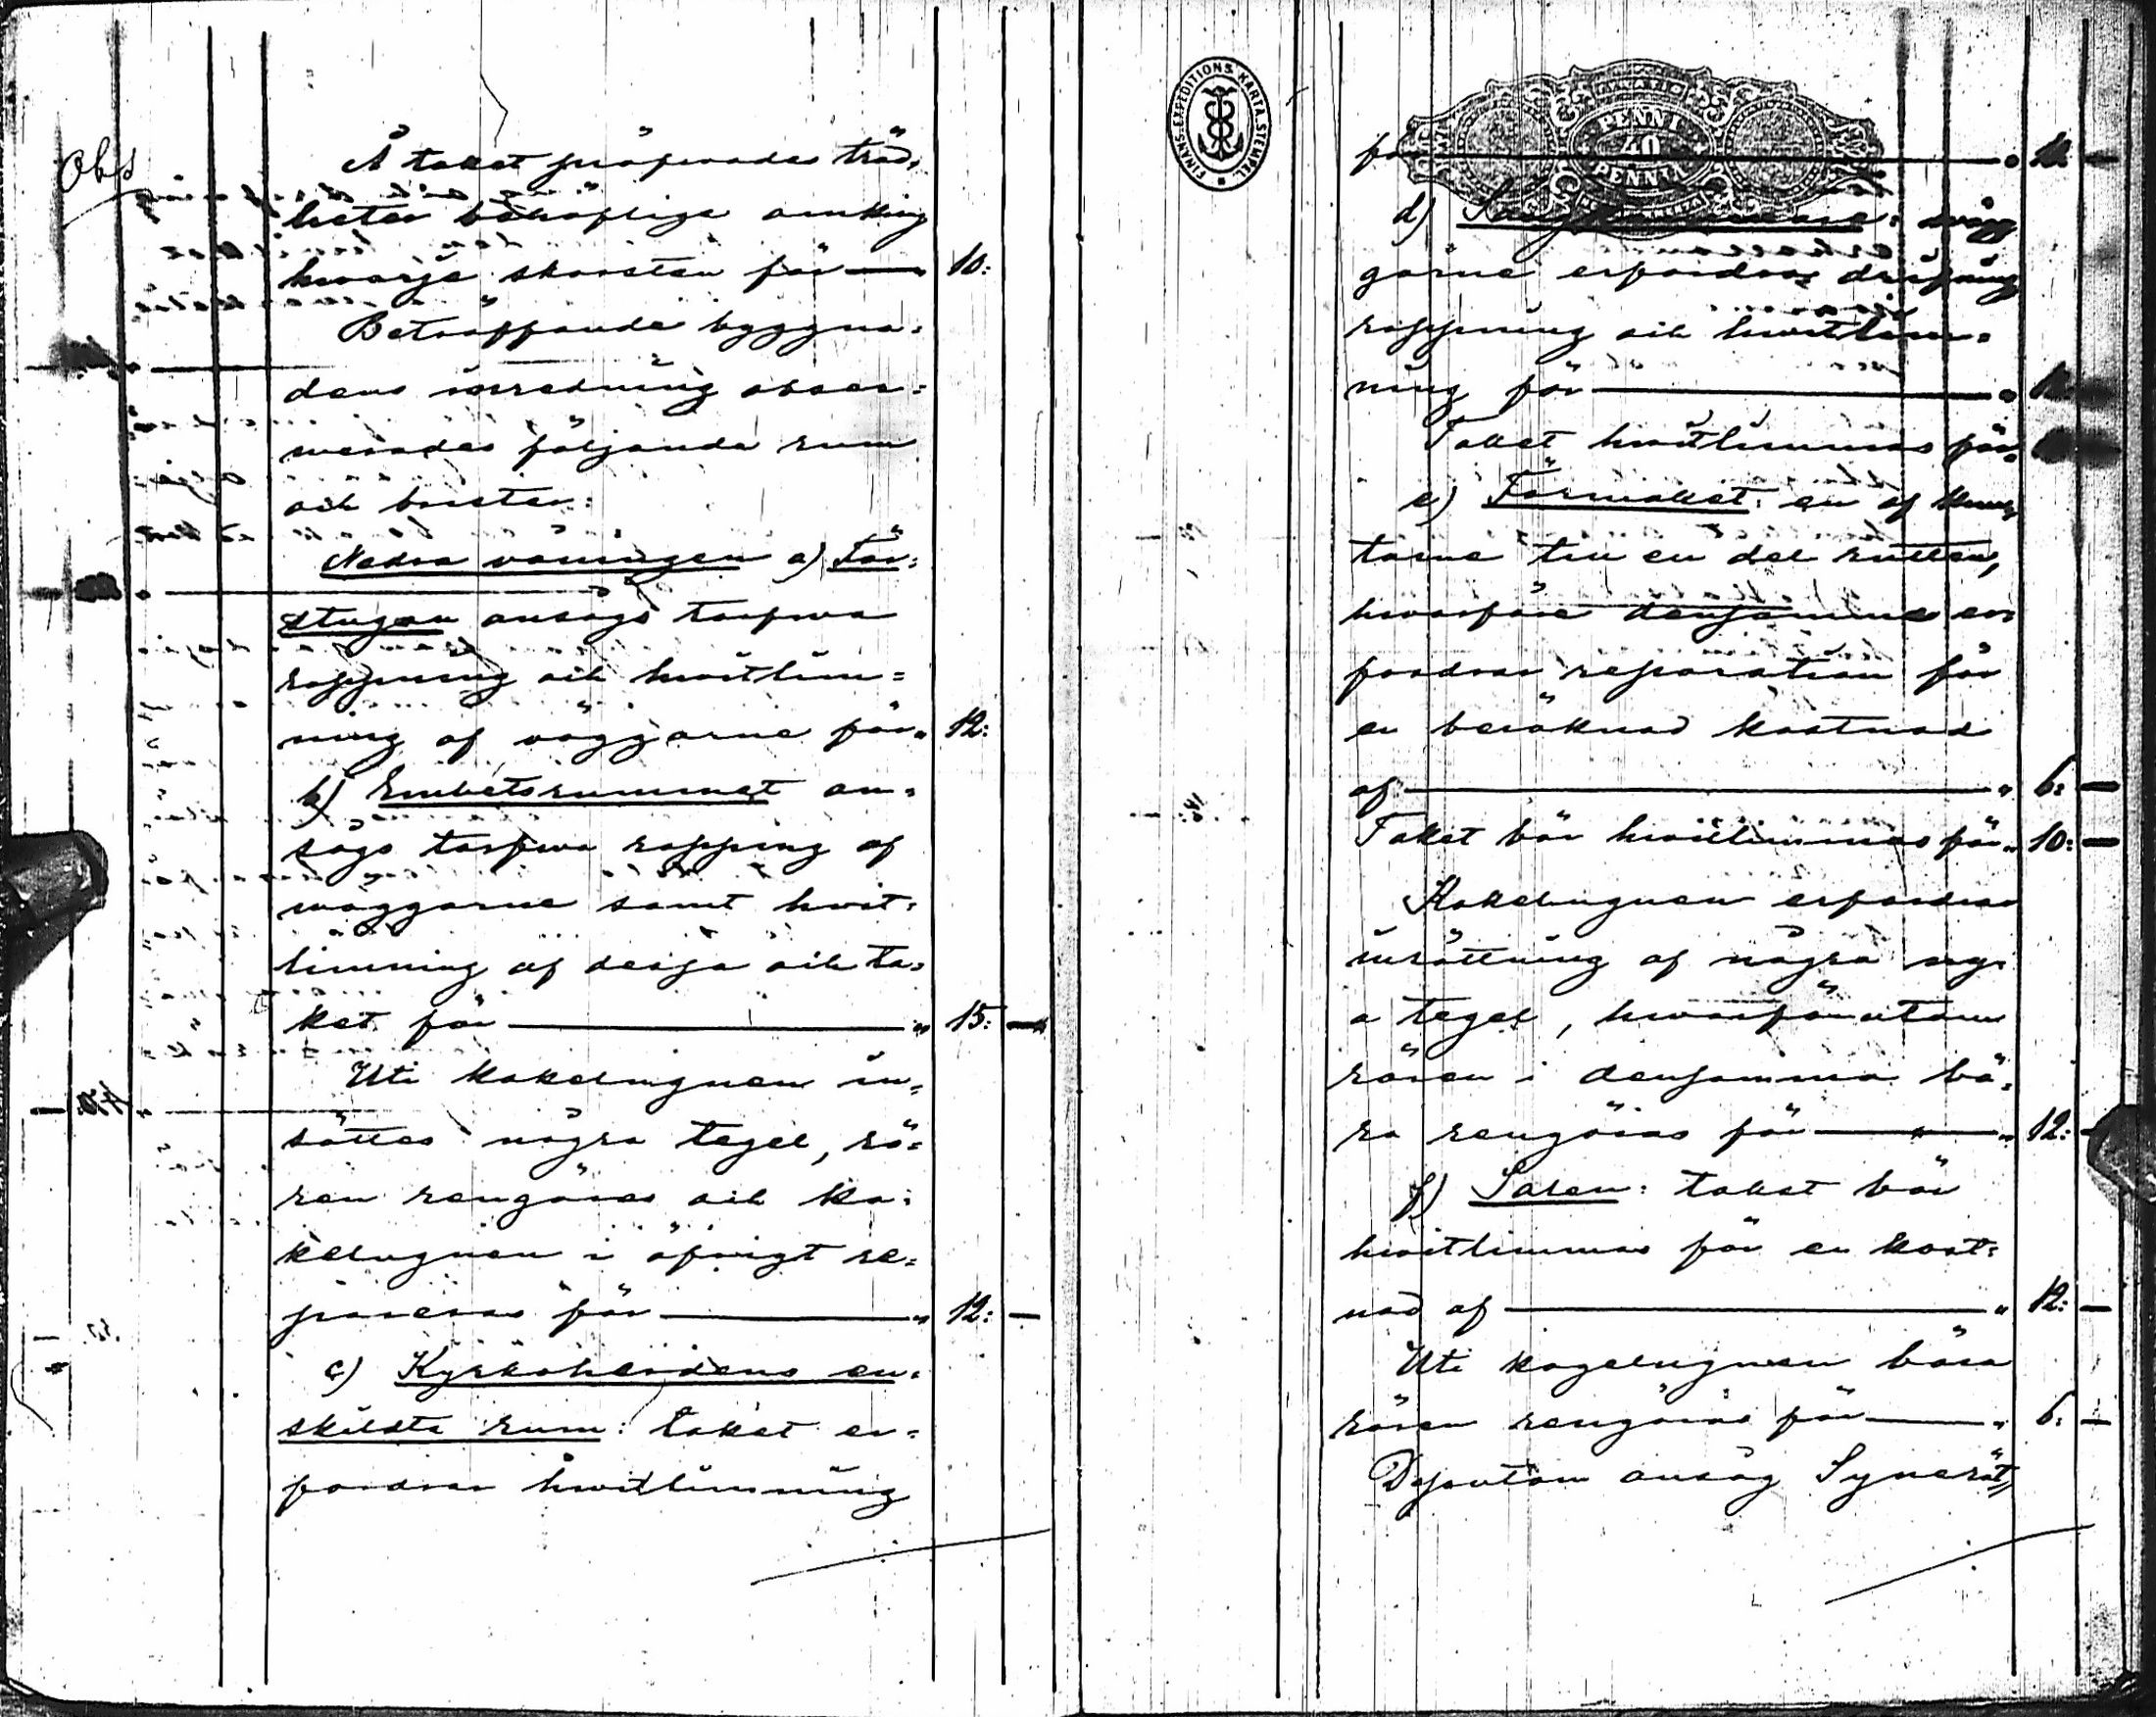 Obs
Å taket pröfvades träd,
heter behöflige omkring
hvarje skorsten för — " 10:
Beträffande byggna=
dens inredning obser=
verades följande rum
och brister:
Nedra våningen a) För=
stugan ansågs tarfva
rappning och hvitlim=
ning af väggarne för " 12:
b) Embetsrummet an=
sågs tarfva rapping af
väggarne samt hvit=
limning af dessa och ta=
ket för — " 15: —
Uti kakelugnen in=
sättes några tegel, rö=
ren rengöras och ka=
kelugnen i öfrigt re=
pareras för — " 12: —
c) Kyrkoherdens en=
skildta rum: taket er=
fordrar hvitlimning
FINANS-EXPEDITIONS KARTA STEMPEL
PENNI
40
PENNIÄ
för —
d) : väg
garne erfordrar drifning
rappning och hvitlim=
ning för —
Taket hvitlimmas för "
e) Förmaket: en af
tarne till en del rutten,
hvarföre densamma er
fordrar reparation för
en beräknad kostnad
af — " 6: —
Taket bör hvitlimmas för " 10: —
Kakelugnen erfordrar
insättning af några ny=
a tegel, hvarförutom
rören i densamma bö=
ra rengöras för — " 12: —
f) Salen: taket bör
hvitlimmas för en kost=
nad af — " 12: —
Uti kagelugnen böra
rören rengöras för — " 6: —
Dessutom ansåg Synerätt